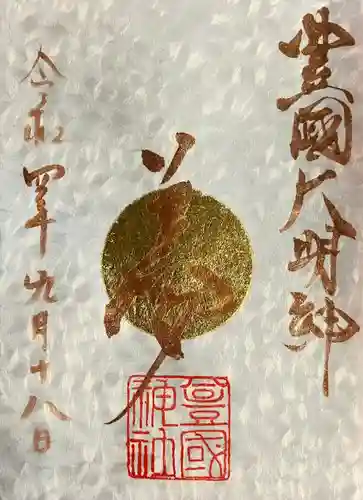 豊國大明神
令和四年九月十八日
豊國
神社